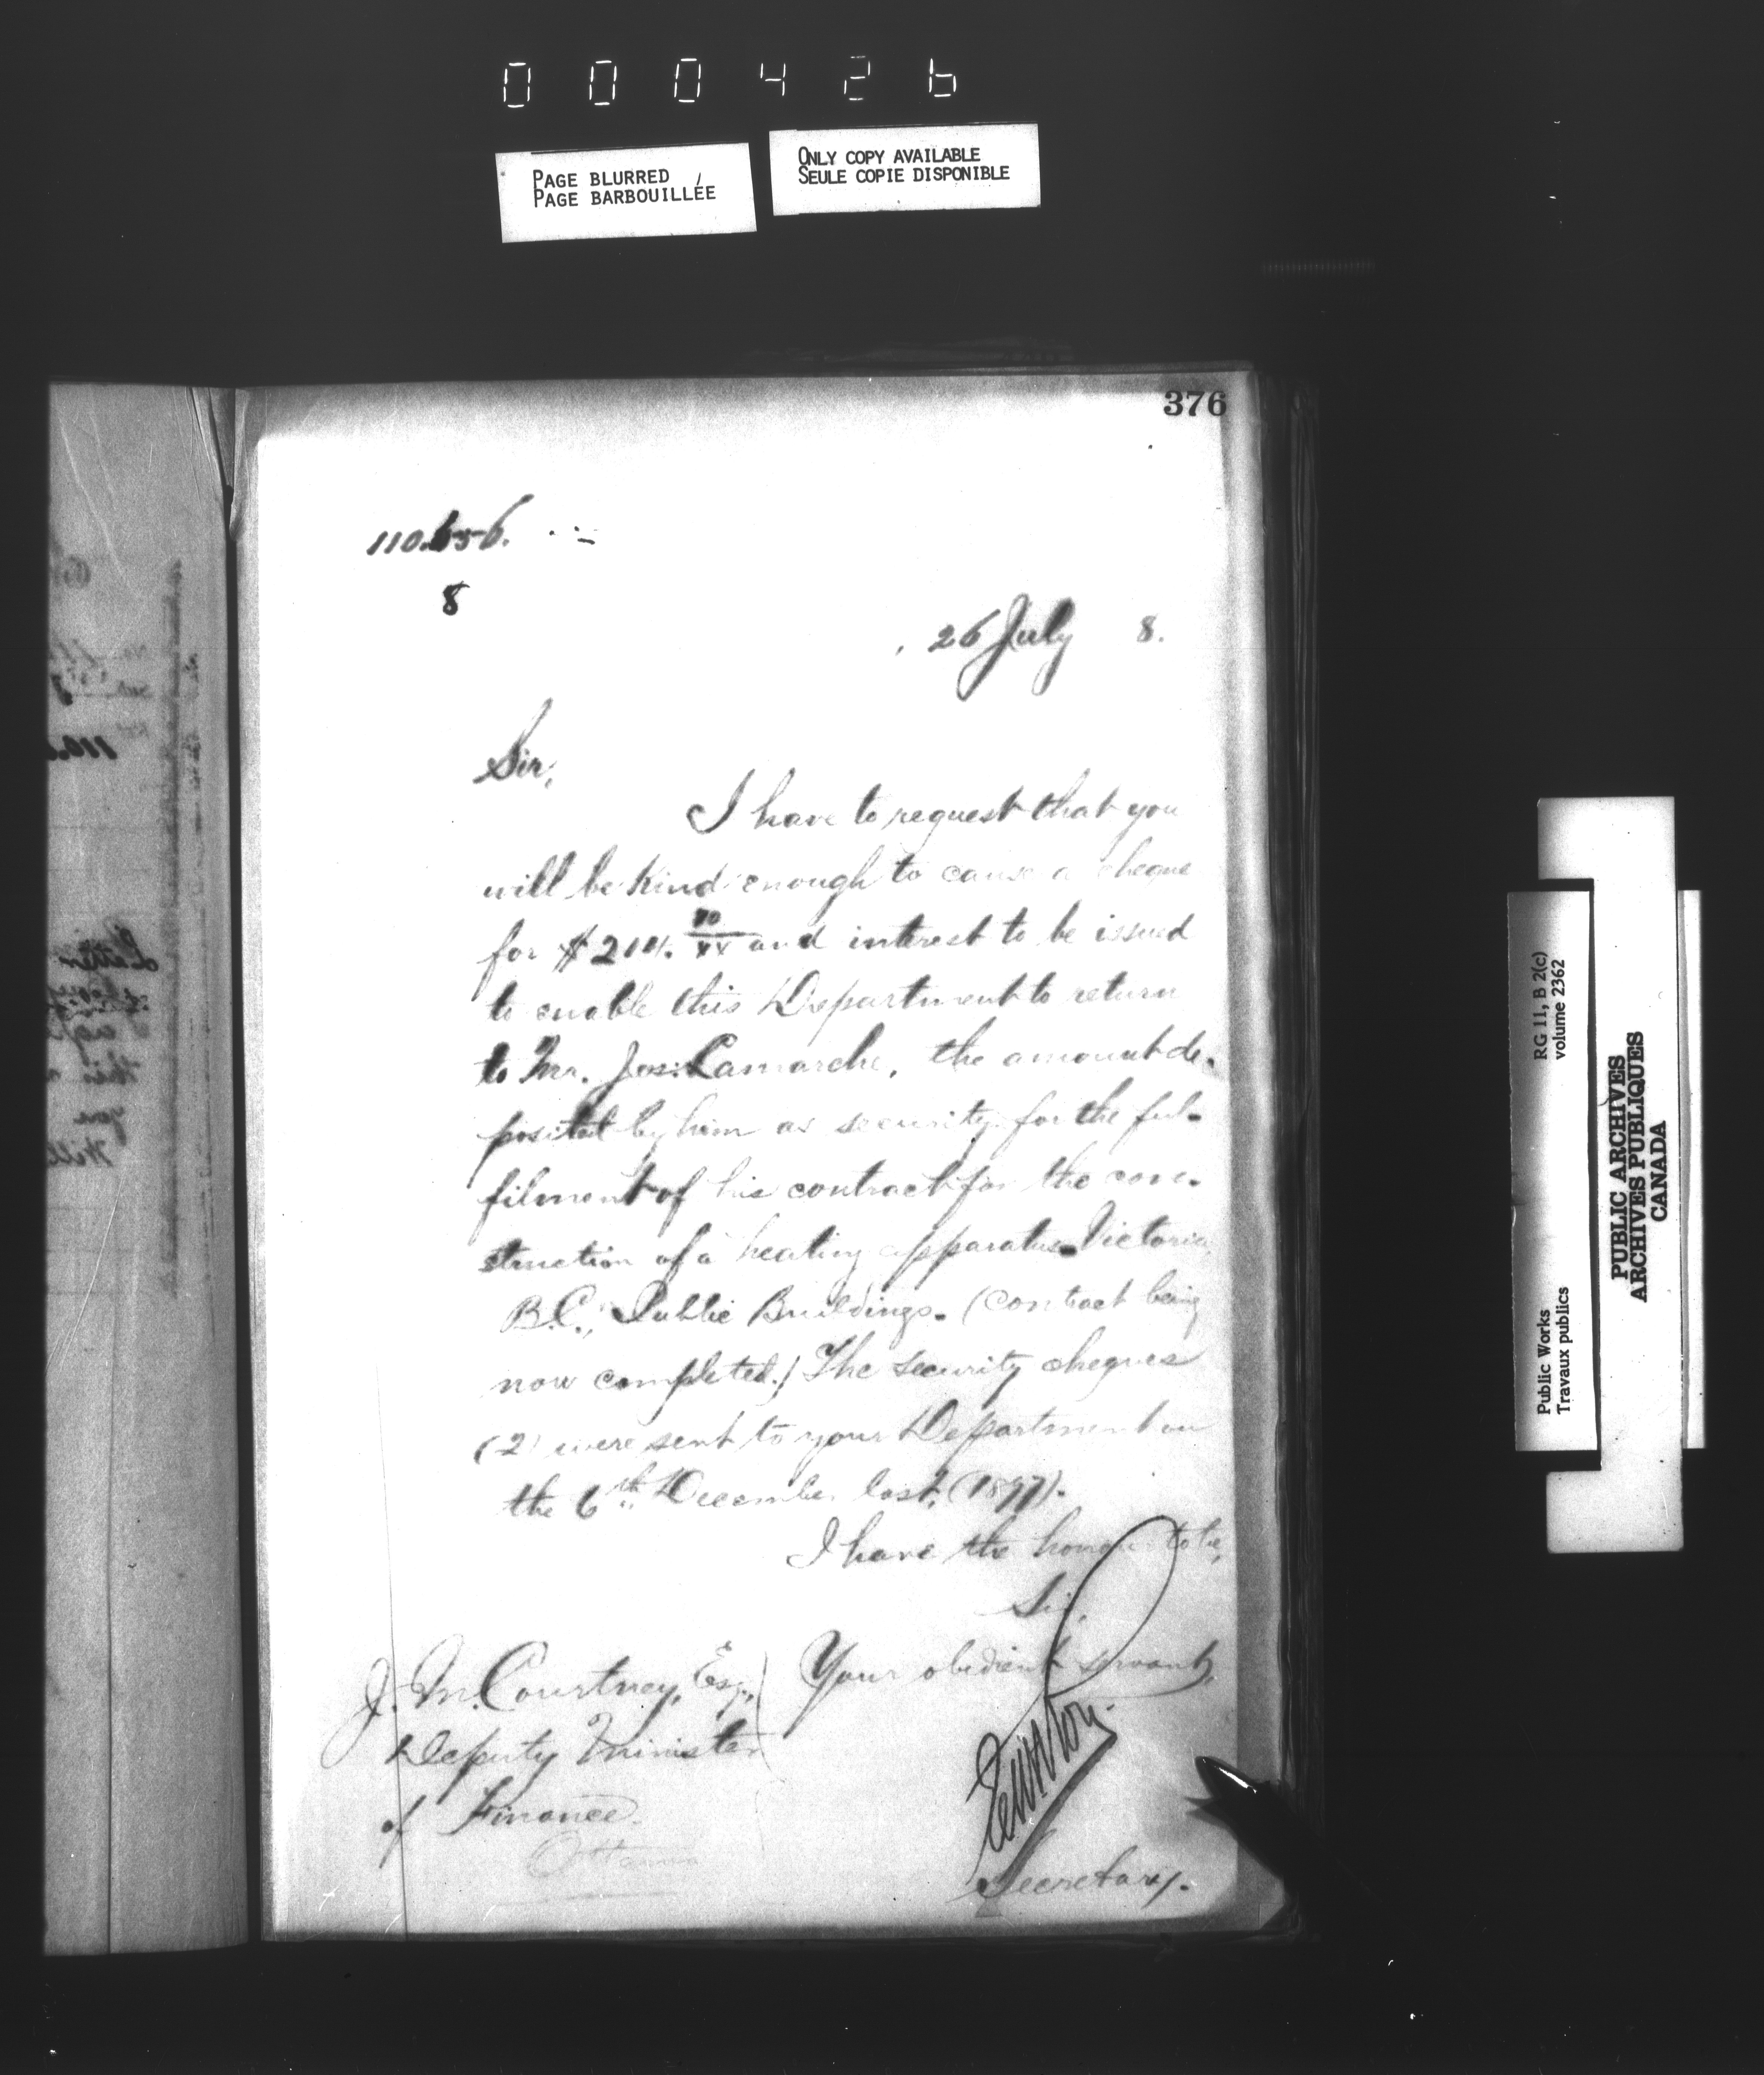 000426
PAGE BLURRED
PAGE BARBOUILLÉE
ONLY COPY AVAILABLE
SEULE COPIE DISPONIBLE
376
110.656.
8
26 July 8.
Sir,
I have to request that you
will be kind enough to cause a cheque
for $214. and interest to be issued
to enable this Department to return
to Mr. Jos. Lamarche, the amount de-
posited by him as security for the ful-
filment of his contract for the con-
struction of a heating apparatus Victoria,
B.C., Public Buildings. (Contract being
now completed.) The security cheques
(2) were sent to your Department on
the 6th December last, (1897).
I have the honour to be,
Sir,
Your obedient servant,
J. M. Courtney, Esq.,
Deputy Minister
of Finance.
Ottawa
Secretary.
RG 11, B 2(c)
volume 2362
Public Works
Travaux publics
PUBLIC ARCHIVES
ARCHIVES PUBLIQUES
CANADA